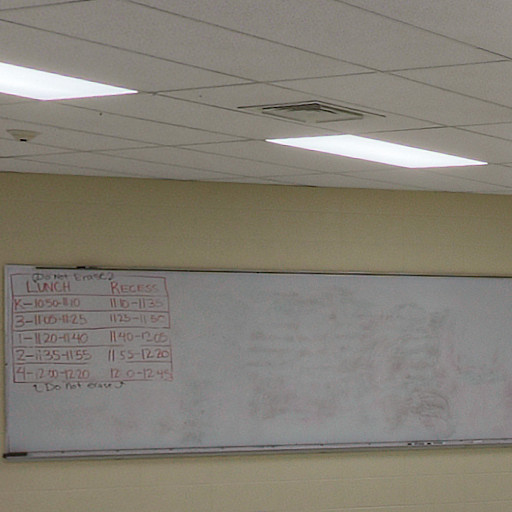 Do Not Erase
LUNCH RECESS
K-10:50-11:10 11:10-11:35
3-11:05-11:25 11:25-11:50
1-11:20-11:40 11:40-12:05
2-11:35-11:55 11:55-12:20
4-12:00-12:20 12:20-12:45
Do not erase